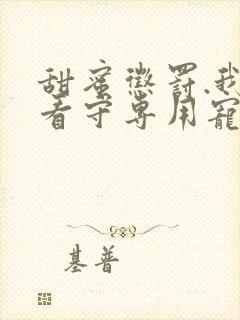 甜蜜懲罰.我
看守專用寵
基普